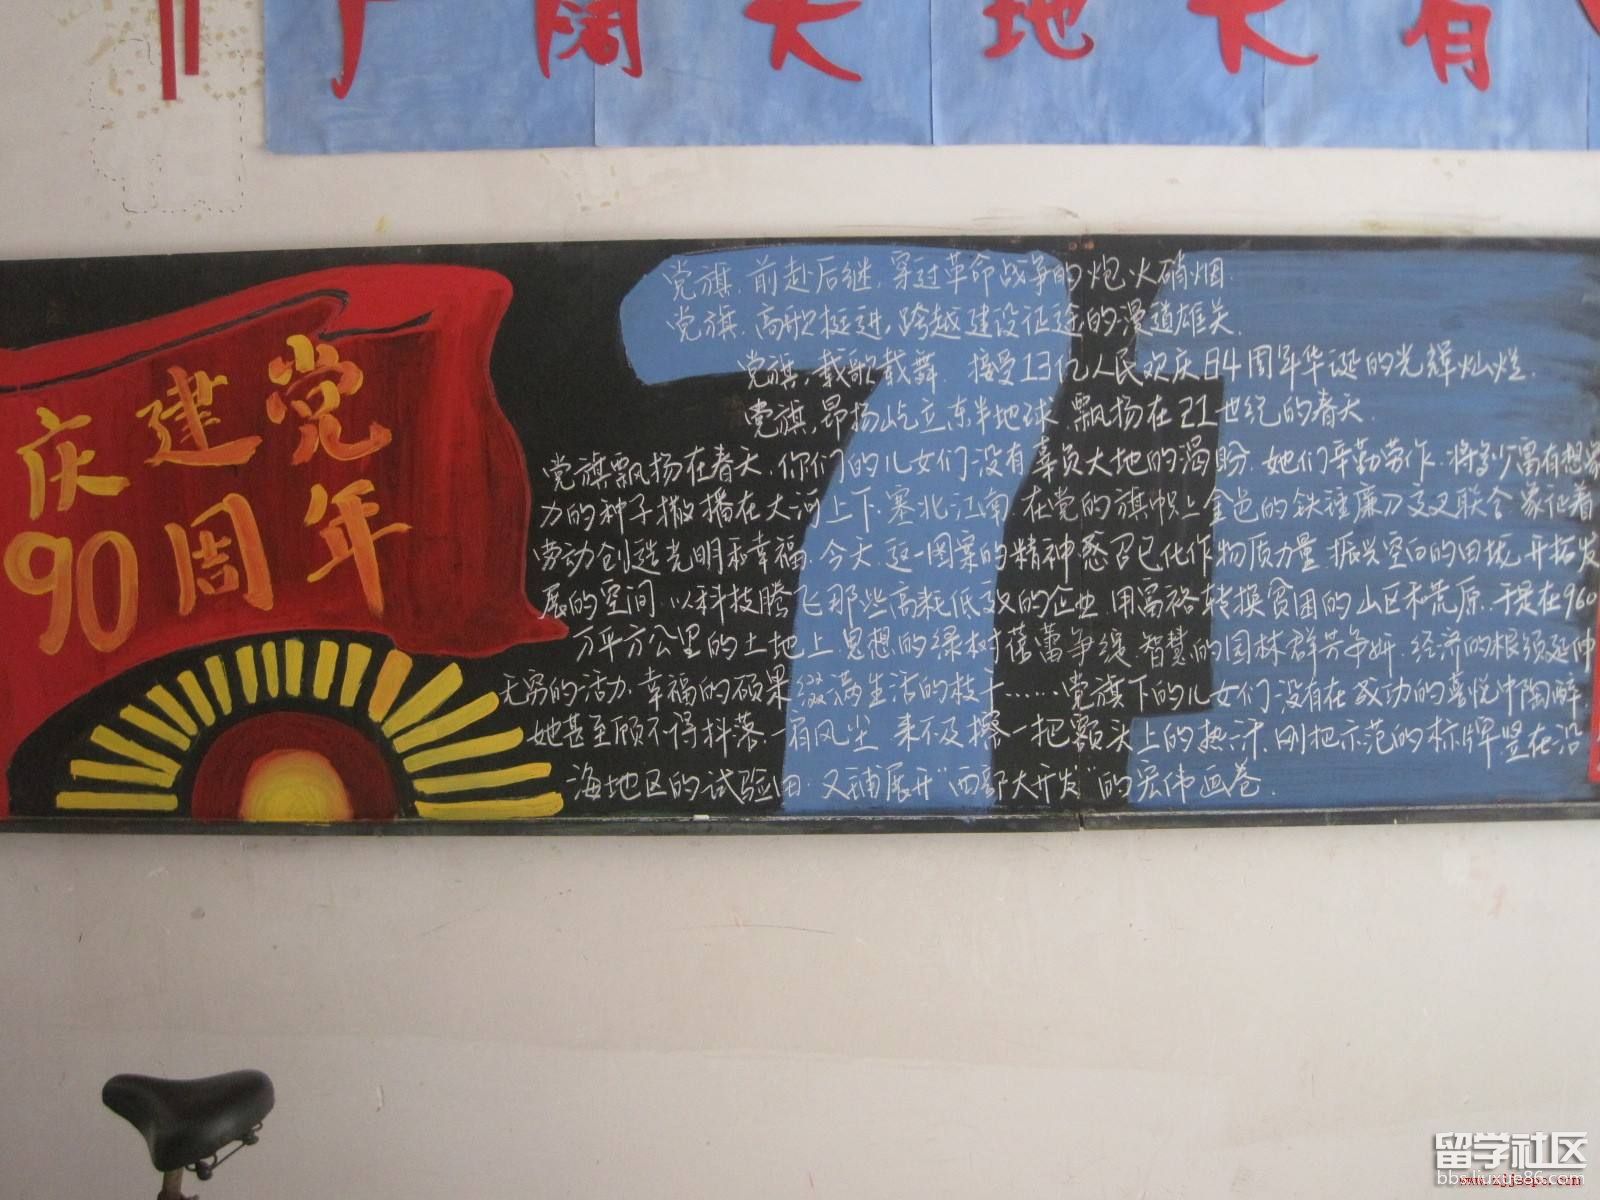 广阔天地大有
庆建党
90周年
党旗，前赴后继，穿过革命战争的炮火硝烟.
党旗，高歌挺进，跨越建设征途的漫道雄关.
党旗，载歌载舞，接受13亿人民欢庆84周年华诞的光辉灿烂.
党旗，昂扬屹立东半地球，飘扬在21世纪的春天.
党旗飘扬在春天，你们的儿女们没有辜负大地的渴盼，她们辛勤劳作，将多少富有想象
力的种子撒播在大河上下，塞北江南，在党的旗帜上金色的铁锤廉刀交叉联合，象征着
劳动创造光明和幸福，今天，这一图案的精神感召已化作物质力量，振兴空白的田垅，开拓发
展的空间，以科技腾飞那些高耗低效的企业，用富裕转换贫困的山区和荒原，于是在960
万平方公里的土地上，思想的绿树蓓蕾争绽，智慧的园林群芳争妍，经济的根须延伸
无穷的活力，幸福的硕果缀满生活的枝干……党旗下的儿女们没有在成功的喜悦中陶醉
她甚至顾不得抖落一肩风尘，来不及擦一把额头上的热汗，刚把示范的标牌竖在沿
海地区的试验田，又铺展开“西部大开发”的宏伟画卷.
留学社区
bbs.liuxue86.com